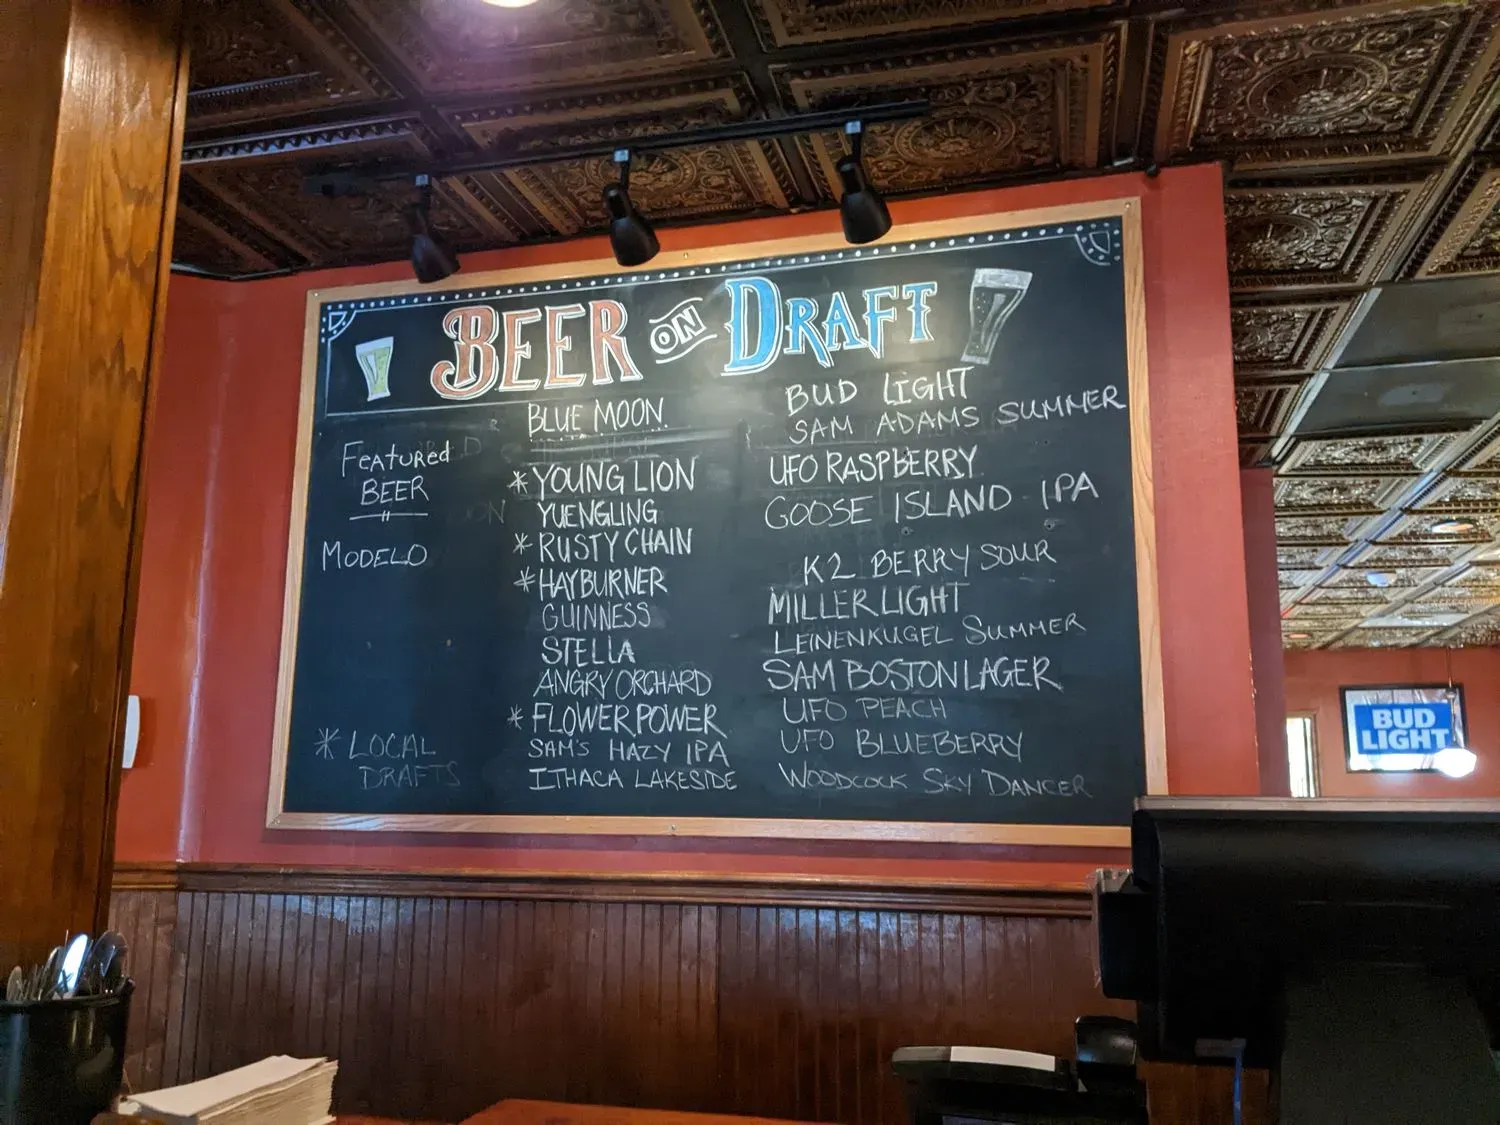 BEER ON DRAFT
Featured
BEER
MODELO
* LOCAL
DRAFTS
BLUE MOON
* YOUNG LION
YUENGLING
* RUSTY CHAIN
* HAYBURNER
GUINNESS
STELLA
ANGRY ORCHARD
* FLOWER POWER
SAM'S HAZY IPA
ITHACA LAKESIDE
BUD LIGHT
SAM ADAMS SUMMER
UFO RASPBERRY
GOOSE ISLAND IPA
K2 BERRY SOUR
MILLER LIGHT
LEINENKUGEL SUMMER
SAM BOSTON LAGER
UFO PEACH
UFO BLUEBERRY
WOODCOCK SKY DANCER
BUD
LIGHT